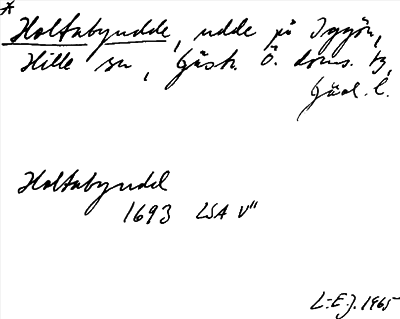 * Holtabyudde, udde på Iggön,
Hille sn, Gästr. Ö. doms. tg,
Gävl. l.
Holtabyudd
1693 LSA V"
L-E.J. 1965